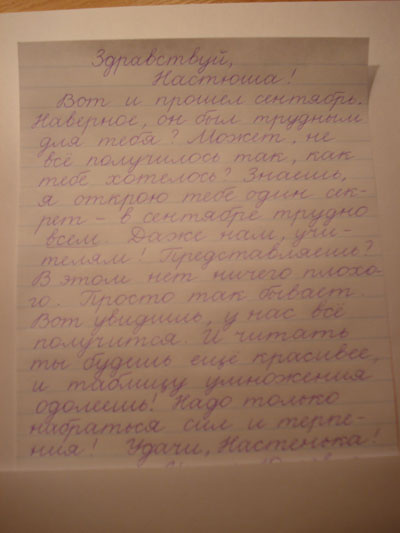 Здравствуй,
Настюша!
Вот и прошел сентябрь.
Наверное, он был трудным
для тебя? Может, не
всё получилось так, как
тебе хотелось? Знаешь,
я открою тебе один сек-
рет – в сентябре трудно
всем. Даже нам, учи-
телям! Представляешь?
В этом нет ничего плохо-
го. Просто так бывает.
Вот увидишь, у нас всё
получится. И читать
ты будешь ещё красивее,
и таблицу умножения
одолеешь! Надо только
набраться сил и терпе-
ния! Удачи, Настенька!